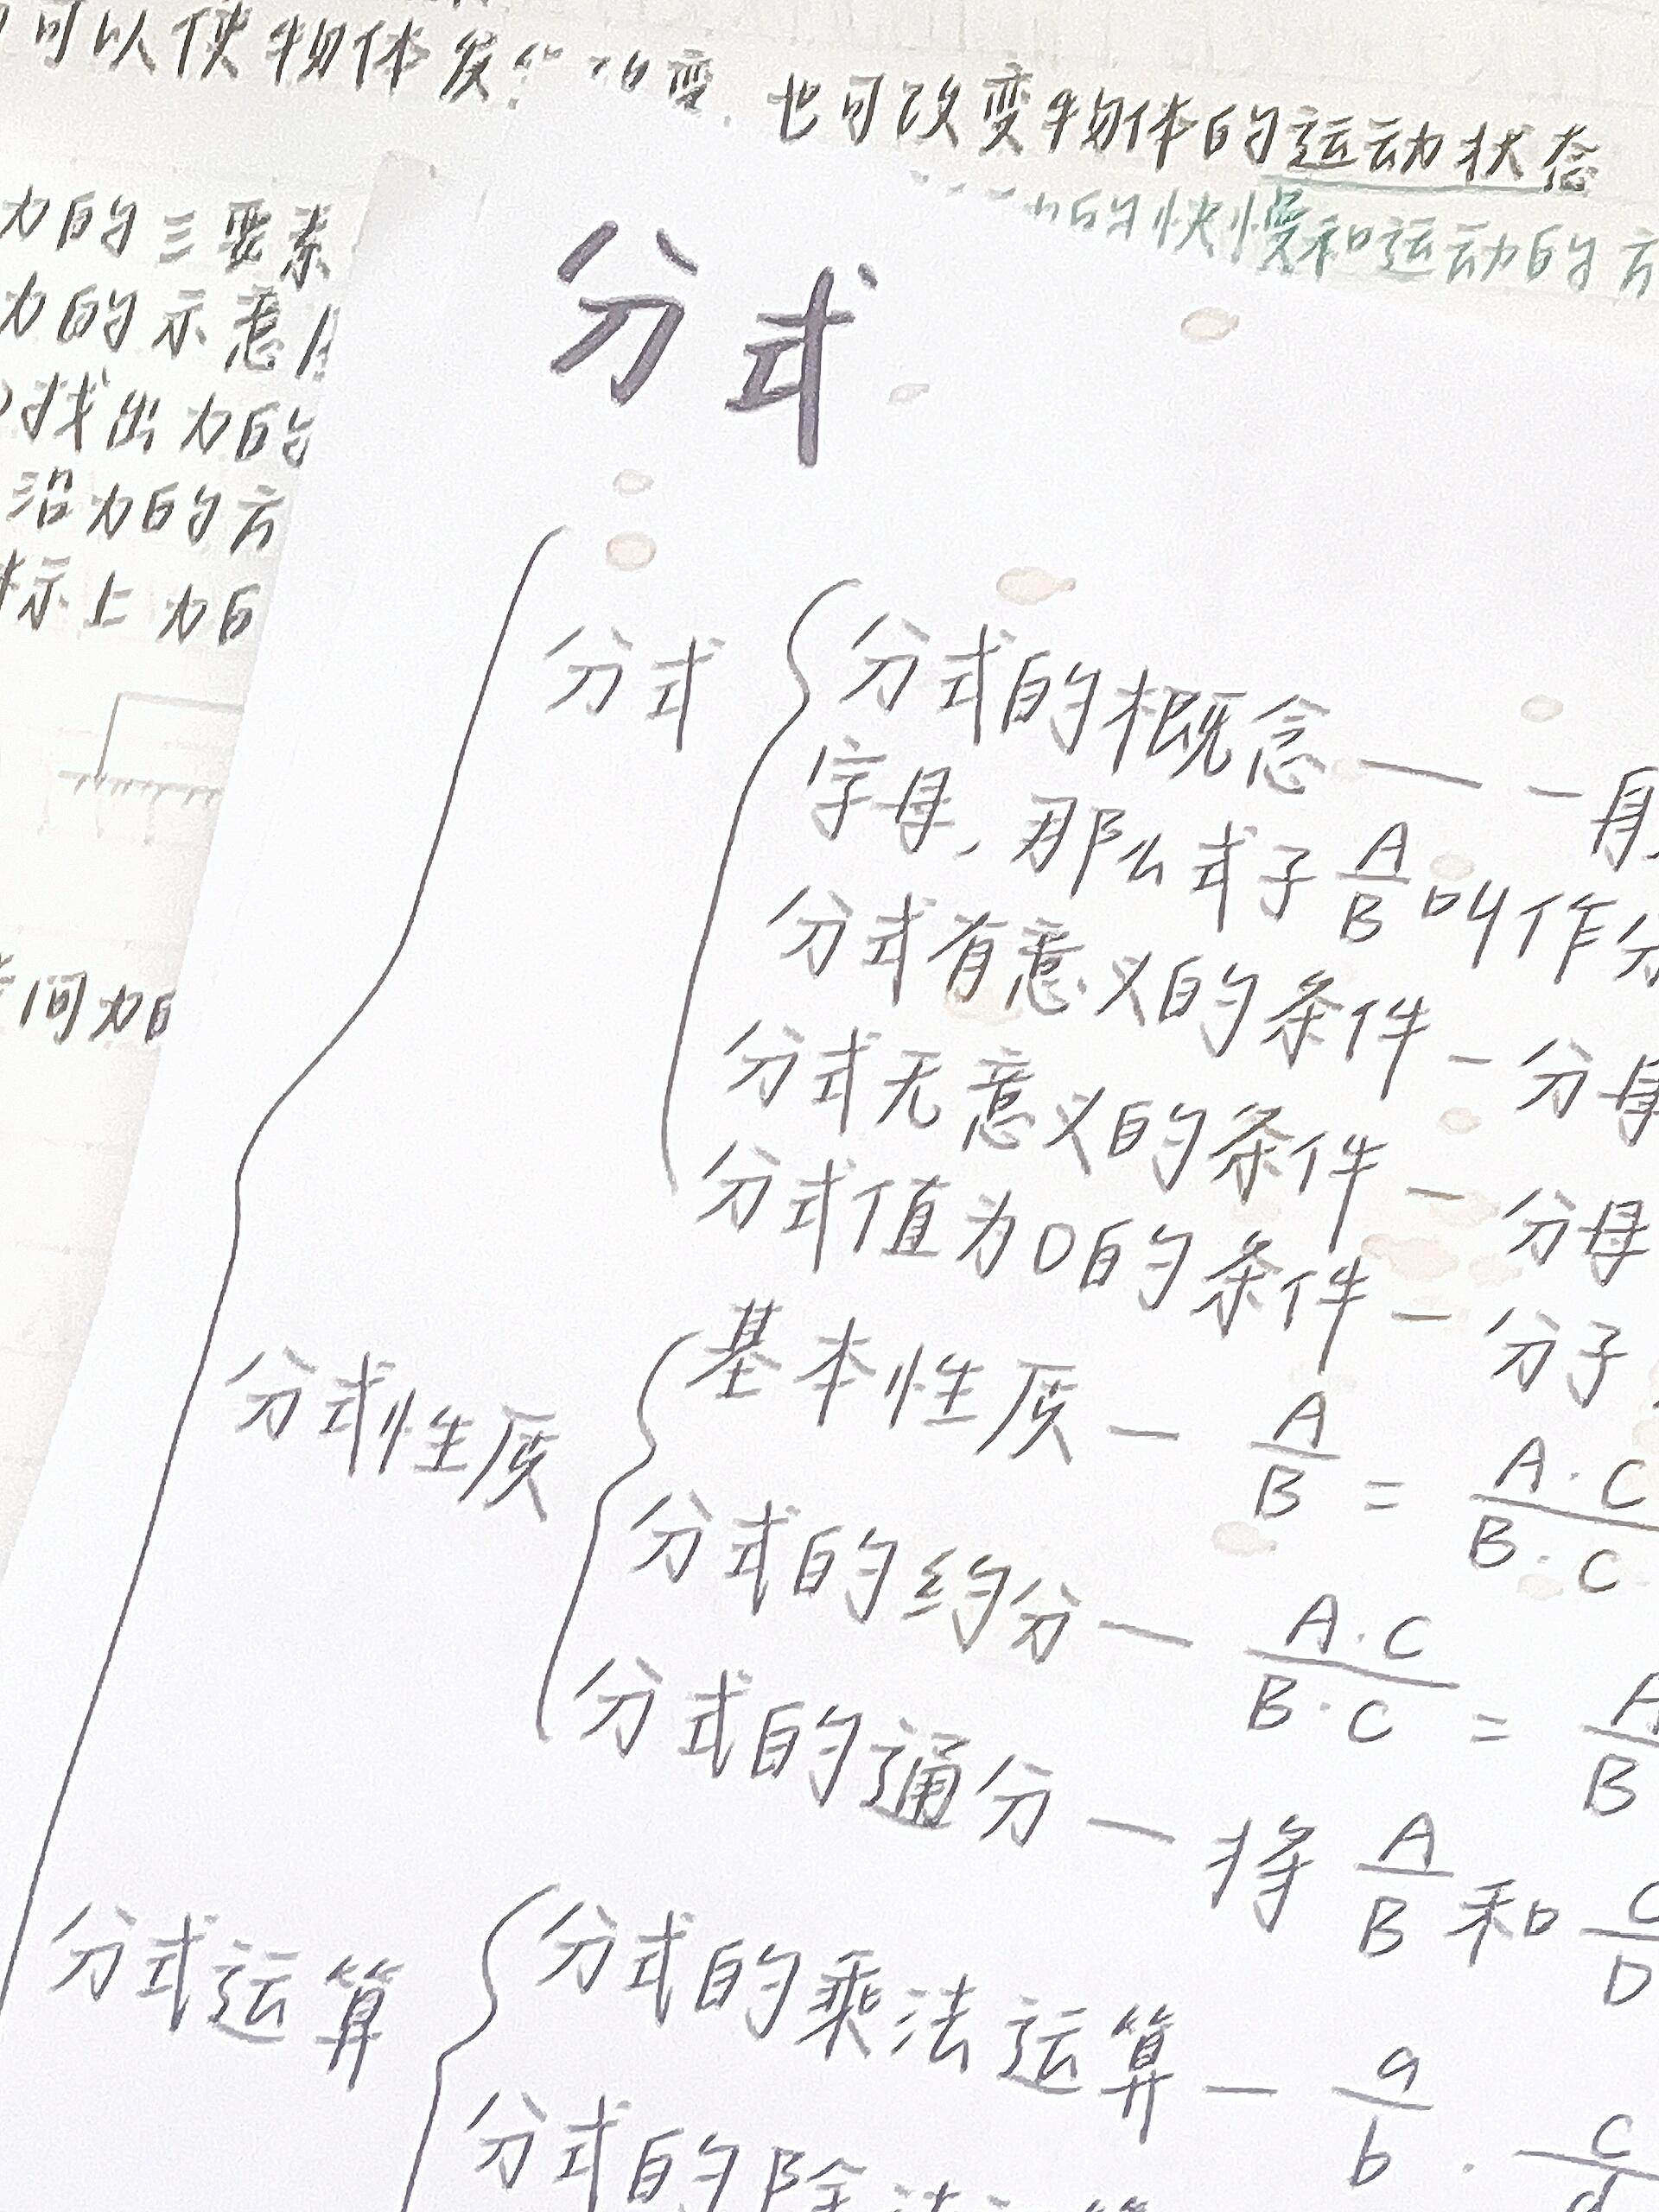 可以使物体发 变, 也可改变物体的运动状态
的快慢和运动的方
力的三要素
力的示意
找出力的
沿力的方
标上力的
间力的
分式
分式
分式的概念 — 一般
字母, 那么式子 A/B 叫作分
分式有意义的条件 — 分母
分式无意义的条件 — 分母
分式值为0的条件 — 分子
分式性质
基本性质 — A/B = A·C/B·C
分式的约分 — A·C/B·C = A/B
分式的通分 — 将 A/B 和 C/D
分式运算
分式的乘法运算 — a/b · c/d
分式的除法运算